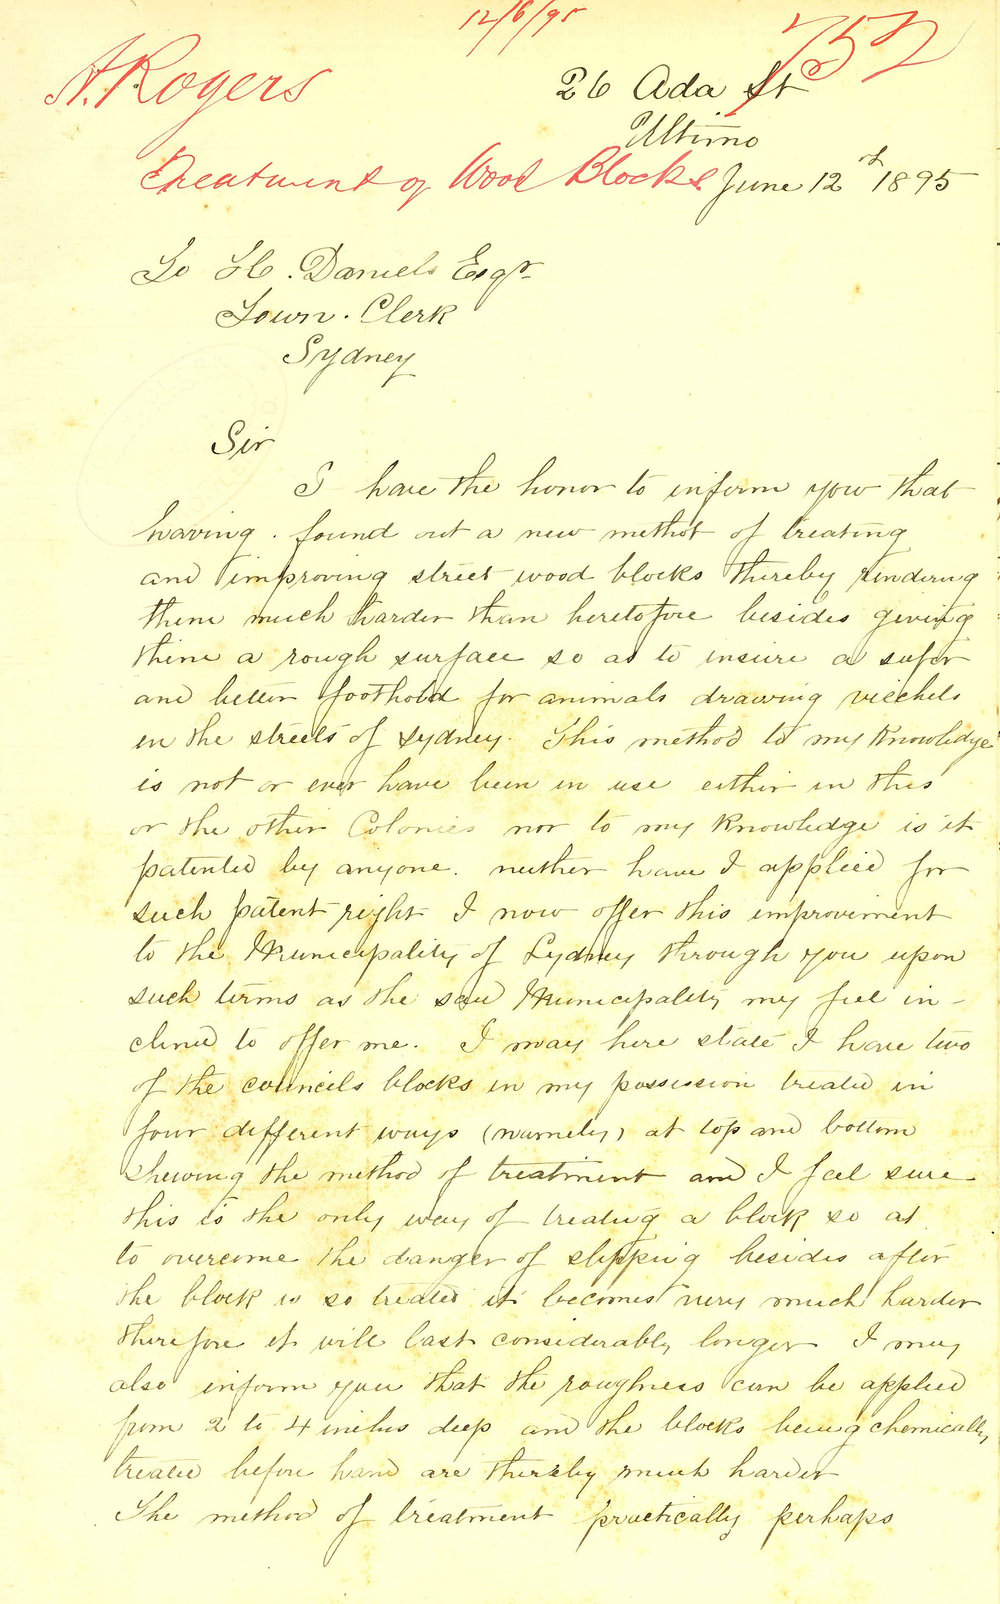 12/6/95
752
A. Rogers
26 Ada St
Ultimo
Treatment of Wood Blocks
June 12th 1895
To H. Daniels Esqr
Town Clerk
Sydney
Sir
I have the honor to inform you that
having found out a new methot of treating
and improving street wood blocks thereby rendering
them much harder than heretofore besides giving
them a rough surface so as to insure a safer
and better foothold for animals drawing viechels
in the streets of Sydney. This method to my knowledge
is not or ever have been in use either in this
or the other Colonies nor to my knowledge is it
patented by anyone. neither have I applied for
such patent right I now offer this improvement
to the Municipality of Sydney through you upon
such terms as the said Municipality my feel in-
clined to offer me. I may here state I have two
of the councils blocks in my possession treated in
four different ways (namely) at top and bottom
shewing the method of treatment and I feel sure
this is the only way of treating a block so as
to overcome the danger of slipping besides after
the block is so treated it becomes very much harder
therefore it will last considerably longer I may
also inform you that the roughness can be applied
from 2 to 4 inches deep and the blocks being chemically
treated before hand are thereby much harder
The method of treatment practically perhaps